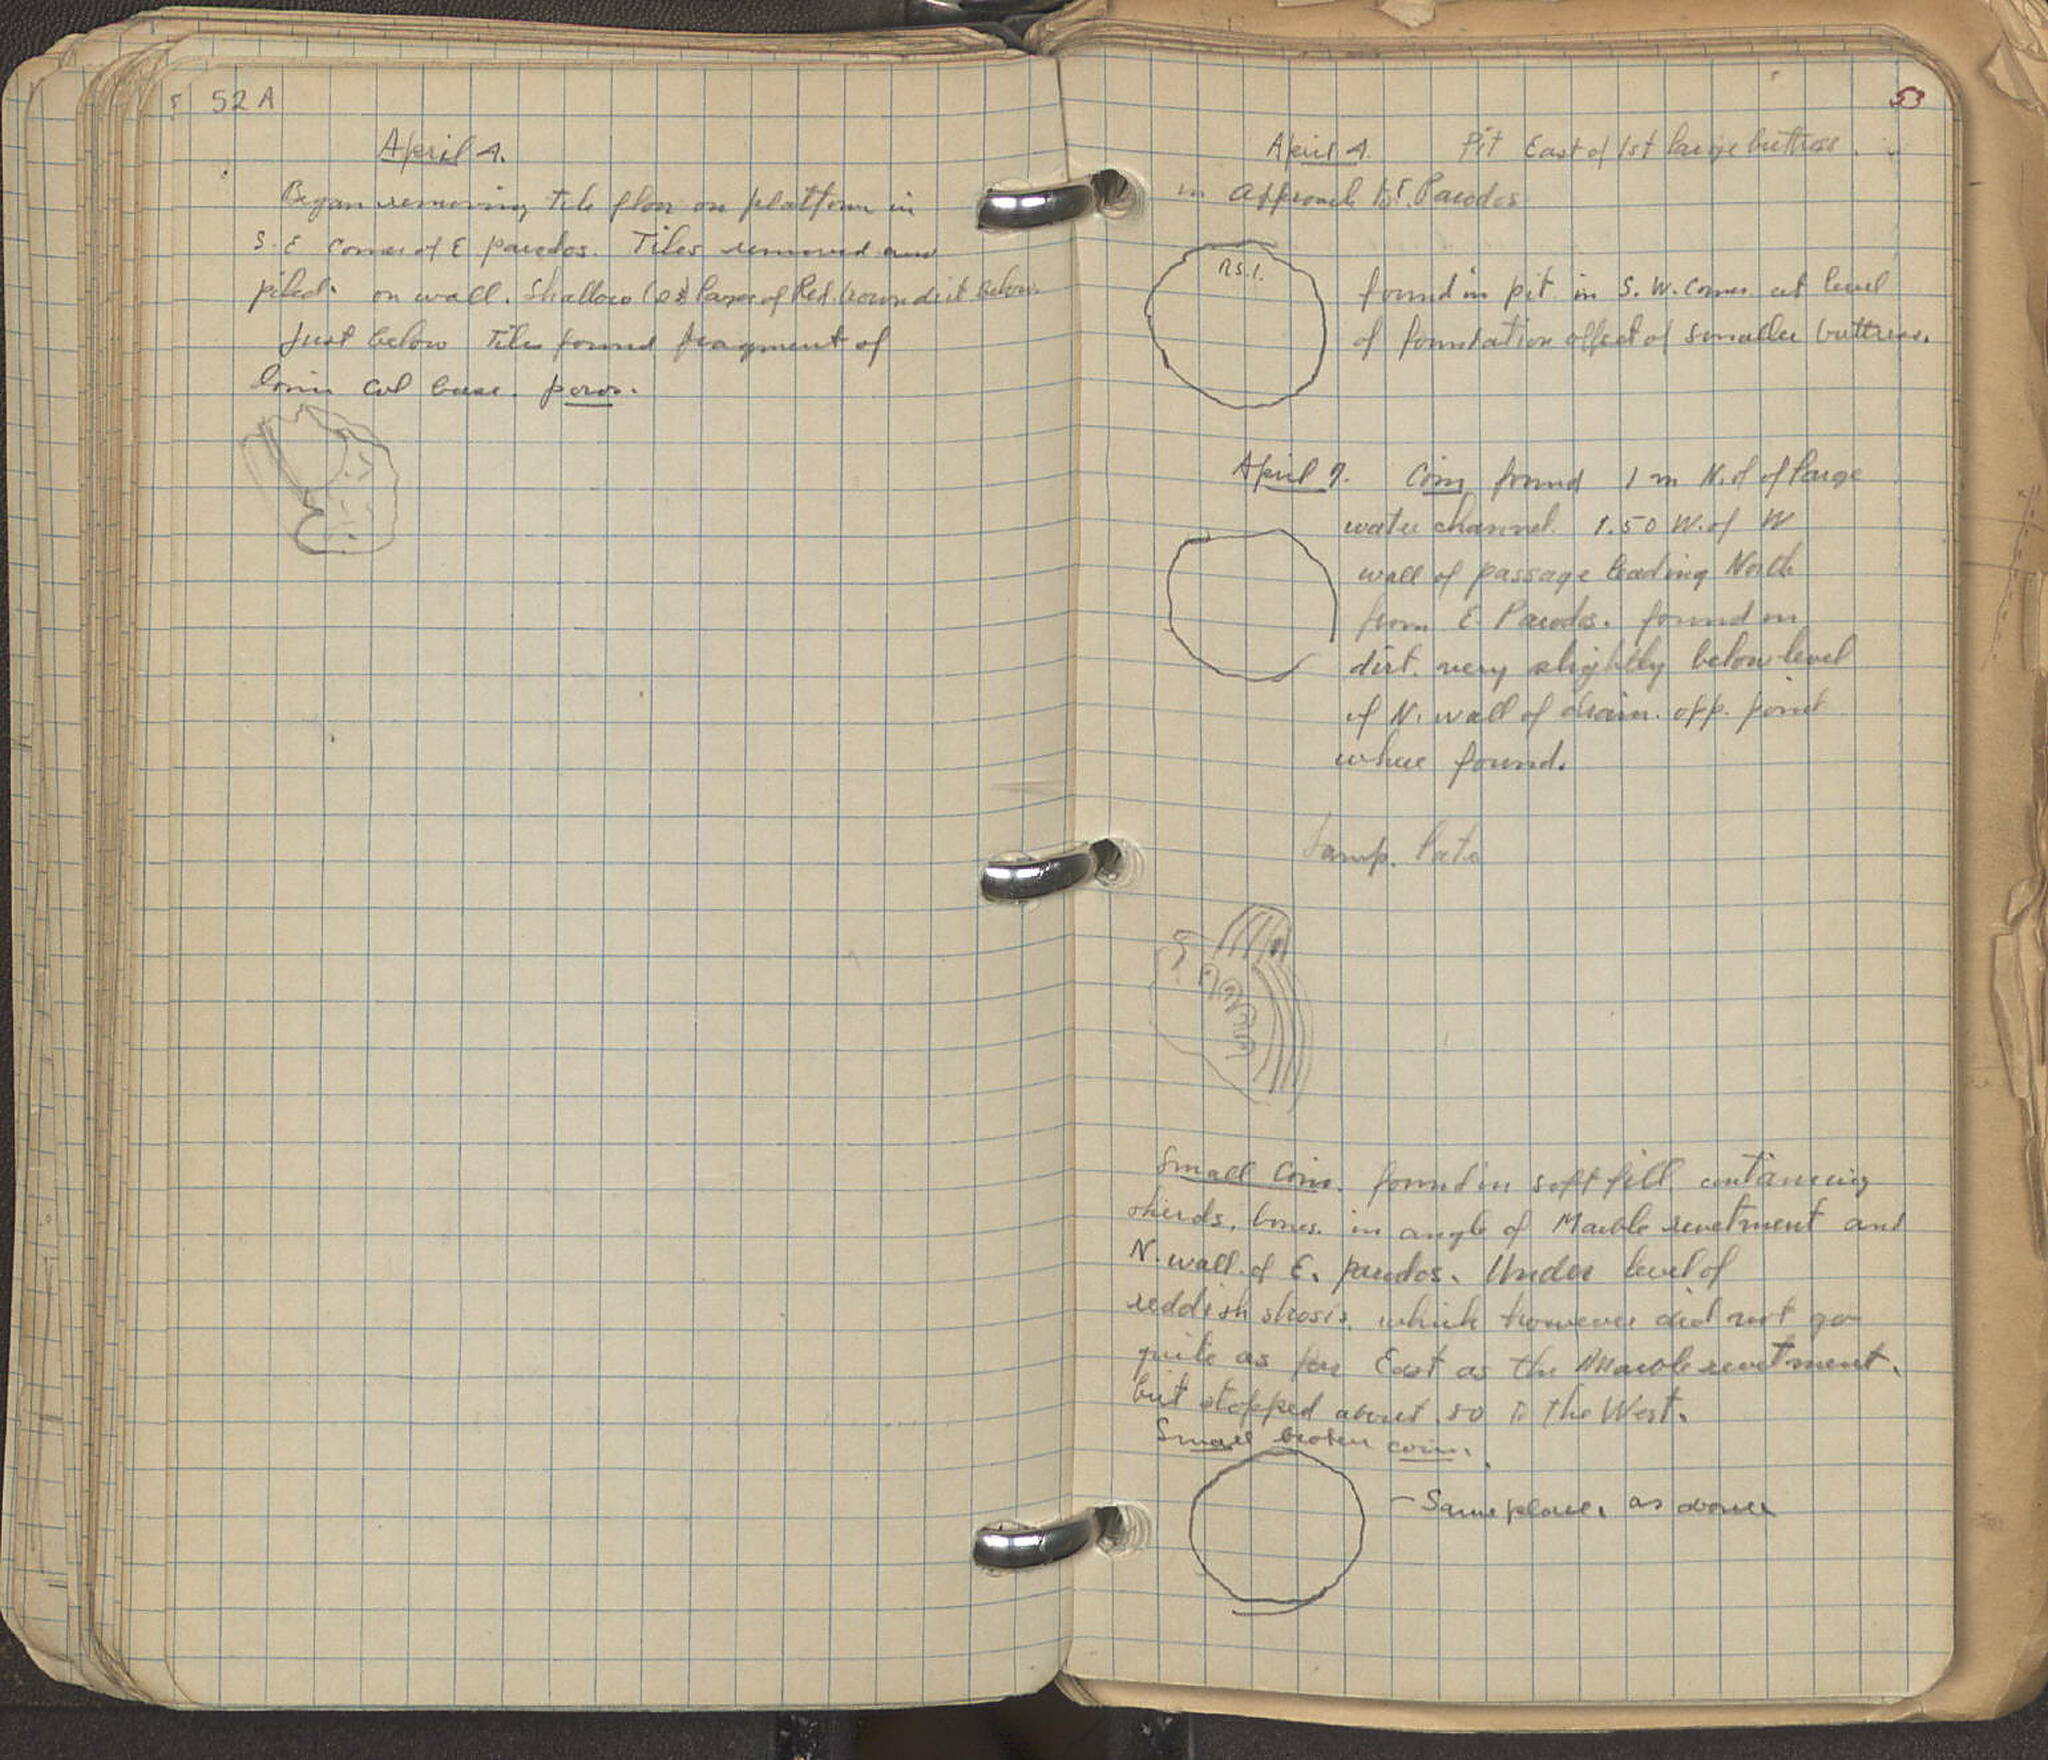 52 A
April 4.
Began removing tile floor on platform in
S. E corner of E parodos. Tiles removed and
piled. on wall. Shallow layer of Red. brown dirt below.
Just below Tiles found fragment of
Ionic col base. poros.
53
April 4. Pit East of 1st large buttress.
in approach to E. Parodos
found in pit in S. W. corner at level
of foundation offset of smaller buttress.
April 9. Coin found 1 m N. of of large
water channel. 1.50 W. of W
wall of passage leading North
from E. Parodos. found in
dirt. very slightly below level
of N. wall of drain. opp. point
where found.
Lamp. late
Small Coin. found in soft fill containing
sherds, bones. in angle of Marble revetment and
N. wall of E. parodos. Under level of
reddish strosis. which however did not go
quite as far East as the Marble revetment.
but stopped about .50 to the West.
Small broken coin.
- Same place. as above